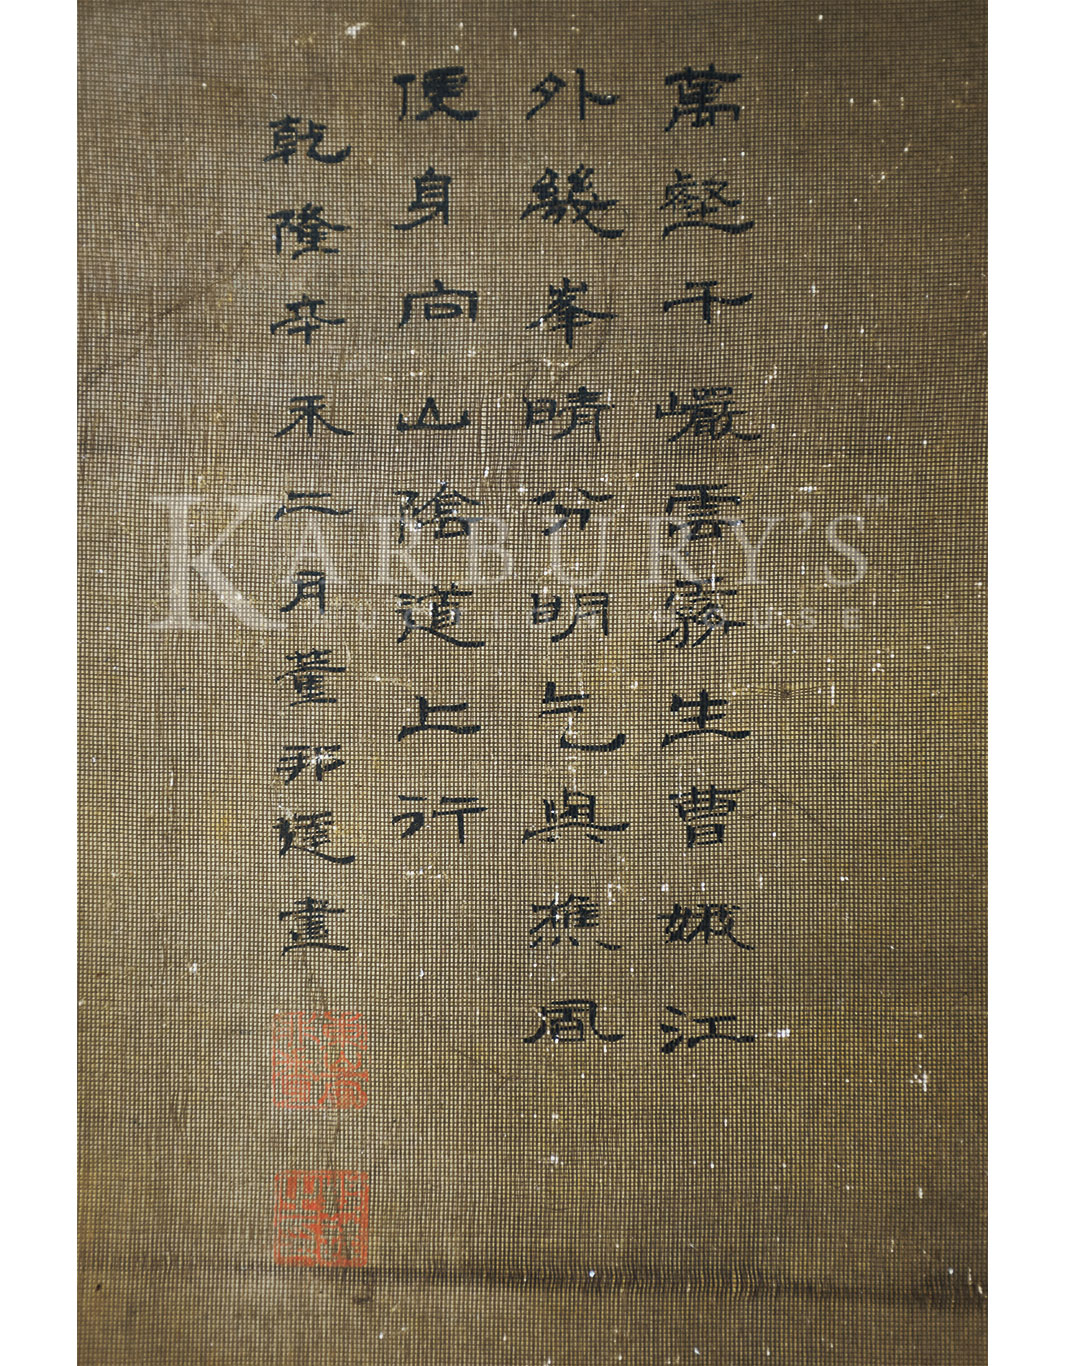 萬壑千巖雲霧生曹娥江
外數峯晴分明乞與樵風
便身向山陰道上行
乾隆辛未二月董邦達畫
KARBURY'S
AUCTION HOUSE